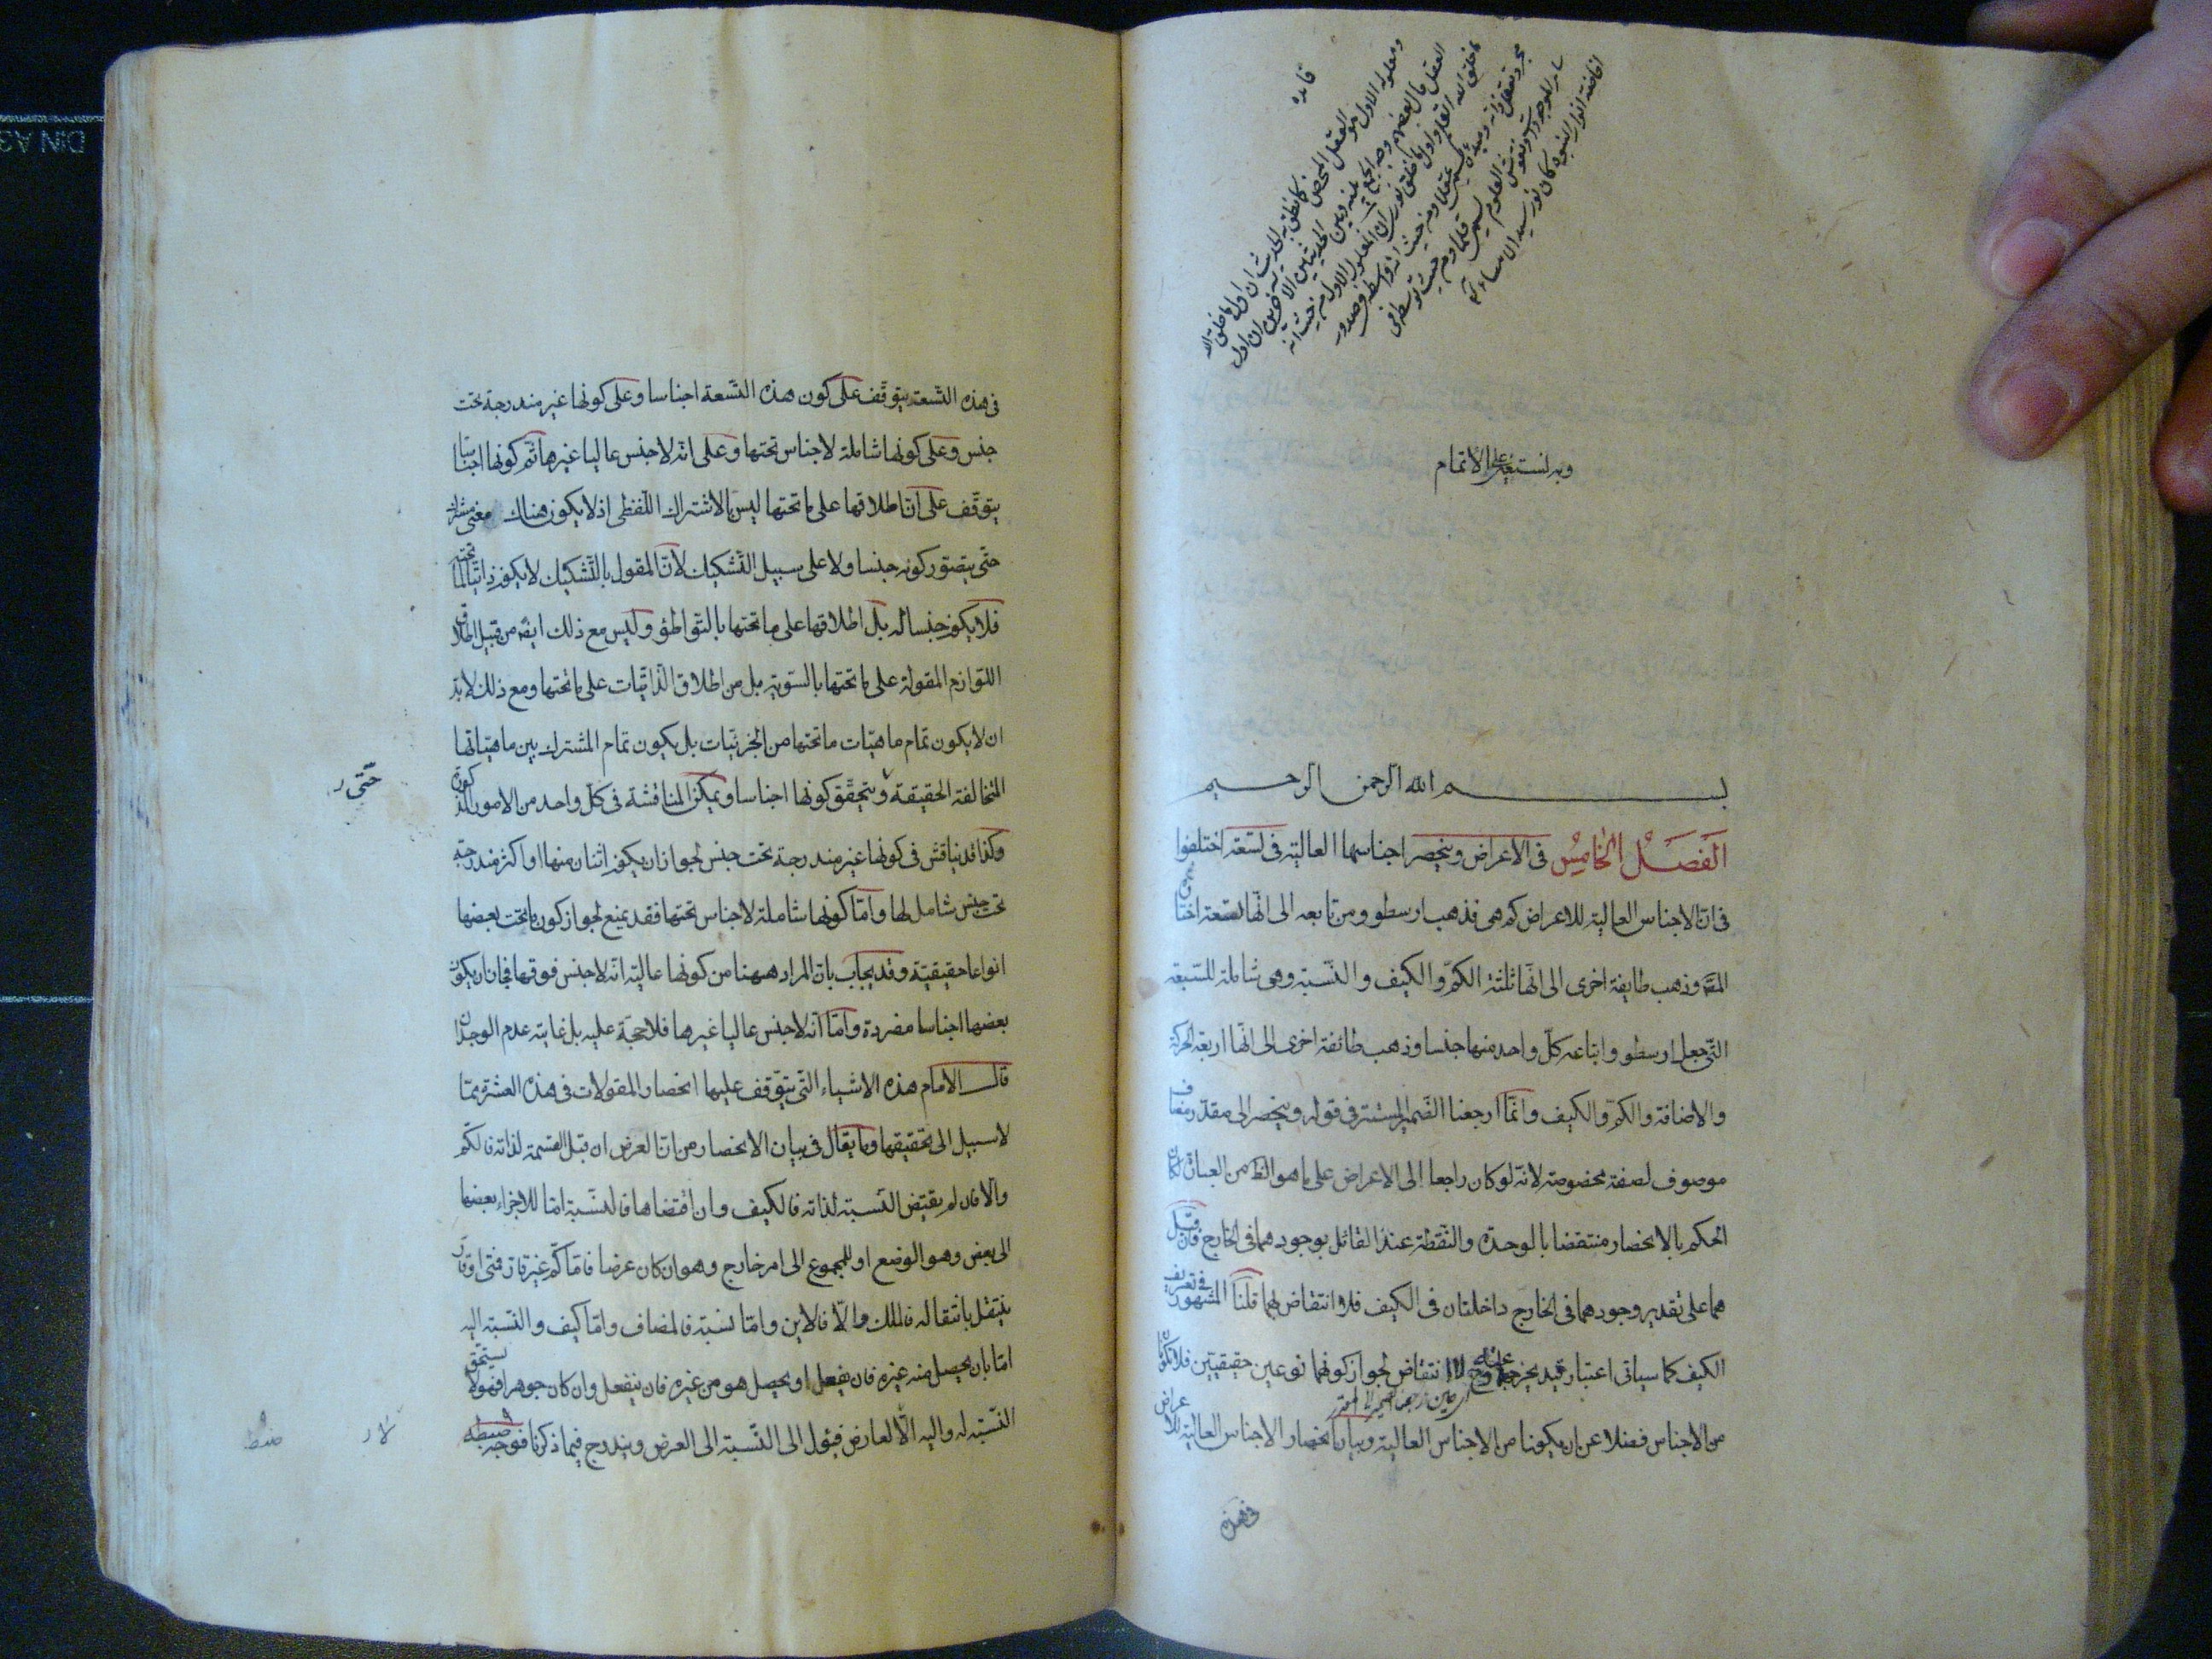 فائده
ومعلوله الاول هو العقل المحض كما نطق به الحديث ان اول ما خلق الله
العقل قال بعضهم وجه الجمع بينه وبين الحديثين الآخرين ان اول
ما خلق الله القلم واول ما خلق الله نورى ان المعلول الاول من حيث انه
مجرد يعقل ذاته ومبدأه يسمى عقلا ومن حيث انه واسطة فى صدور
ساير الموجودات ونقوش العلوم يسمى قلما ومن حيث توسطه فى
افاضة انوار النبوة كان نور سيد الانبياء
وبه نستعين على الاتمام
بسم الله الرحمن الرحيم
الفصل الخامس فى الاعراض وينحصر اجناسها العالية فى تسعة اختلفوا
فى ان الاجناس العالية للاعراض كم هى فذهب ارسطو ومن تابعه الى انها تسعة اختاره
المص وذهب طايفة اخرى الى انها ثلثة الكم والكيف والنسبة وهى شاملة للسبعة
التى جعل ارسطو واتباعه كل واحد منها جنسا وذهب طائفة اخرى الى انها اربعة الحركة
والاضافة والكم والكيف وانما ارجعنا الضمير المستتر فى قوله وينحصر الى مقدر مضاف
موصوف لصفة مخصوصة لانه لو كان راجعا الى الاعراض على ما هو الظ من العبارة لكان
الحكم بالانحصار منتقضا بالوحدة والنقطة عند القائل بوجودهما فى الخارج فان قيل
هما على تقدير وجودهما فى الخارج داخلتان فى الكيف فلا انتقاض بهما قلنا المشهور فى تعريف
الكيف كما سياتى اعتبار قيد يخرجهما عنه وح لا انتقاض لجواز كونهما نوعين حقيقيتين فلا تكونان
اى حين ارجعنا الضمير الى المقدر
من الاجناس فضلا عن ان يكونا من الاجناس العالية وبيان انحصار الاجناس العالية للاعراض
فى هذه
فى هذه التسعة يتوقف على كون هذه التسعة اجناسا وعلى كونها غير مندرجة تحت
جنس وعلى كونها شاملة لاجناس تحتها وعلى انه لا جنس عاليا غيرها ثم كونها اجناسا
يتوقف على ان اطلاقها على ما تحتها ليس بالاشتراك اللفظى اذ لا يكون هناك معنى مشترك
حتى يتصور كونه جنسا ولا على سبيل التشكيك لان المقول بالتشكيك لا يكون ذاتيا لما تحته
فلا يكون جنسا له بل اطلاقها على ما تحتها بالتواطؤ وليس مع ذلك ايضا من قبيل اطلاق
اللوازم المقولة على ما تحتها بالسوية بل من اطلاق الذاتيات على ما تحتها ومع ذلك لا بد
ان لا يكون تمام ماهيات ما تحتها من الجزئيات بل يكون تمام المشترك بين ماهياتها
المتخالفة الحقيقة ويتحقق كونها اجناسا ويمكن المناقشة فى كل واحد من الامور المذكورة
حتى
وكذا قد يناقش فى كونها غير مندرجة تحت جنس لجواز ان يكون اثنان منها او اكثر مندرجة
تحت جنس شامل لها واما كونها شاملة لاجناس تحتها فقد يمنع لجواز كون ما تحت بعضها
انواعا حقيقية وقد يجاب بان المراد ههنا من كونها عالية انه لا جنس فوقها فجاز ان يكون
بعضها اجناسا مفردة واما انه لا جنس عاليا غيرها فلا حجة عليه بل غايته عدم الوجدان
قال الامام هذه الاشياء التى يتوقف عليها انحصار المقولات فى هذه العشرة مما
لا سبيل الى تحقيقها وما يقال فى بيان الانحصار من ان العرض ان قبل القسمة لذاته فالكم
والا فان لم يقتض النسبة لذاته فالكيف وان اقتضاها فالنسبة اما للاجزاء بعضها
الى بعض وهو الوضع او للمجموع الى امر خارج وهو ان كان عرضا فاما كم غير قار فمتى او قار
ينتقل بانتقاله فالملك والا فالاين واما نسبة فالمضاف واما كيف والنسبة اليه
اما بان يحصل منه غيره فان يفعل او يحصل هو من غيره فان ينفعل وان كان جوهرا فهو لا يستحق
النسبة له واليه الا لعارض فيئول الى النسبة الى العرض ويندرج فيما ذكرنا فوجه ضبطه